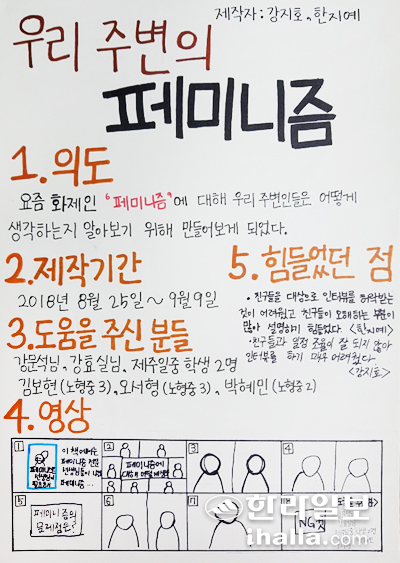 제작자: 강지호, 한지예
우리 주변의
페미니즘
1. 의도
요즘 화제인 "페미니즘"에 대해 우리 주변인들은 어떻게
생각하는지 알아보기 위해 만들어보게 되었다.
2. 제작기간
2018년 8월 25일~9월 9일
3. 도움을 주신 분들
강문석님, 강효실님, 제주일중 학생 2명
김보현(노형중3), 오서형(노형중3), 박혜민(노형중2)
5. 힘들었던 점
• 친구들을 대상으로 인터뷰를 허락받는
것이 어려웠고 친구들이 오해하는 부분이
많아 설명하기 힘들었다. <한지예>
• 친구들과 일정 조율이 잘 되지 않아
인터뷰를 하기 매우 어려웠다.
<강지호>
4. 영상
1
페미니스트
선생님이
필요해
이 책에서는
페미니즘
선생님들이
페미니즘...
2
페미니즘에
대해 어떻게 생각
3
4
5
페미니즘의
문제점은?
6
7
NG컷
한라일보
ihalla.com